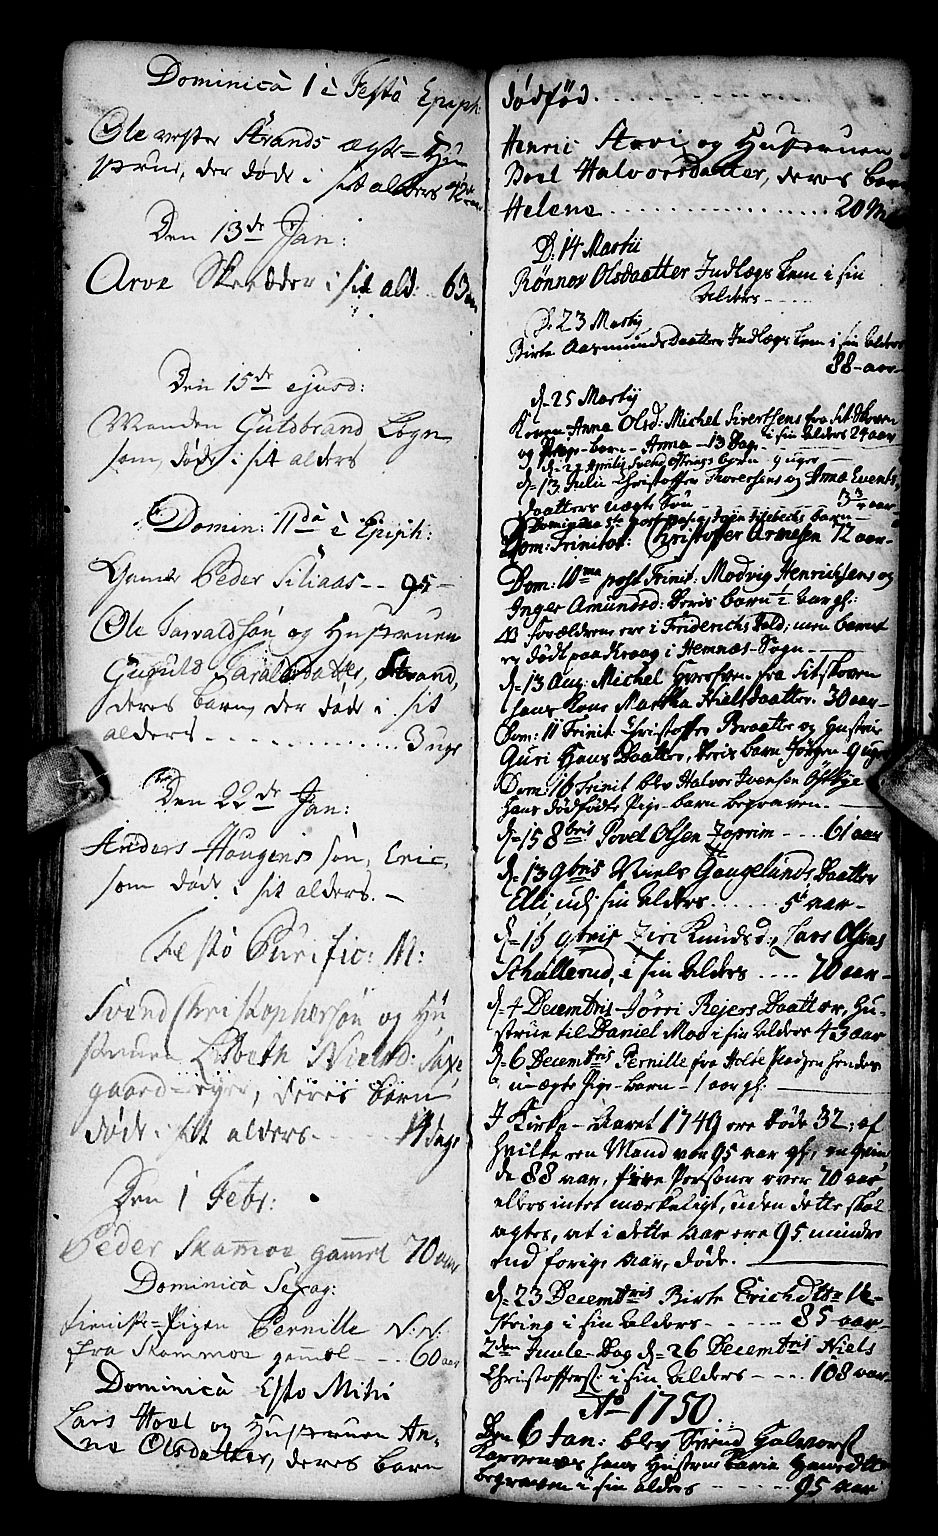 Dominicâ 1 à Festô Epiph:
Ole vester Strands ægte=Hu
strue, der døde i sit alders 42
Den 13de Jan:
Arve Skrædder i sit ald: 63
Den 15de ejusd:
Manden Guldbrand Logn
som døde i sit alders
Domin: IIdâ à Epiph:
Gamle Peder Siliaas - - 95 -
Ole Tarvaldsøn og Hustruen
Haraldsdatter, Strand,
deres barn, der døde i sit
alders - - - 3 uger
Den 22de Jan:
Anders Haugens søn, Eric,
som døde i sit alders. -
Festô Purific: M:
Svend Christophersøn og Hu
struen Lisbeth Nielsd: Saxe
gaard=eyer, deres barn
døde i sit alders - - 14 dage
Den 1 Febr:
Peder Skamoe gammel 70 aar
Dominicâ Sexag:
Pigen Pernille N: N:
fra Kammoe gammel - - 60 aar
Dominicâ Esto Mihi
Lars Hoel og Hustruen An-
ne Olsdatter, deres barn
dødfød. - - -
Henric Arvi og Hustruen
Boel Halvorsdatter, deres barn
Helene - - - 20
D: 14 Martij
Rønnov Olsdaatter Indlægs Lem i sin
Alders - - -
D. 23 Martij
Birte Aasmundsdaatter Indlægs Lem i sin Alders
88 - aar -
d. 25 Martij
Konen Anna Olsd: Michel Sivertsens fra Sitskoven
i sin Alders 24 aar
og Pige-barn - Anna - 13 Dag
d. 13 Julii Christoffer Thoresens og Anne Evens
daatters Søn - - aar -
Dom: Trinitat: Christoffer Arnesen 72 aar -
Dom: 10ma post Trinit: Modvig Henrichsens og
Inger Amundsd: Deris barn 1/2 Aar gl:
NB forældrene ere i Friderichs Hald; men barnet
er dødt paa Kraag i Hemnæs-Sogn -
d. 13 Aug: Michel Syversen fra Sitskoven
hans Kone Martha Nielsdaatter - 30 aar -
Dom: 11 Trinit: Christoffer Braatte og Hustrue
Guri Hans Daatter, Deris barn Jørgen - 9 uger
Dom: 16 Trinit blev Halvor Ivensen
hans dødfødte Pige-barn begraven. -
d. 15 8bris Povel Olsen - - 61 aar
d. 13 9bris Niels Gaugelunds Daatter
Elli udj sin Alders - - - 5 aar -
d. 16 9bris Siri Knudsd:, Lars Olsens
Schullerud, i sin Alders - - - 70 aar -
d. 4 Decembris Jørri Rejers Daatter, Hu-
strue til Daniel Moe i sin Alders 43 aar
d. 6 Decembris Pernille fra Holte Pladsen hendes
uægte Pige-barn - 1 aar gl. -
I Kirke-Aaret 1749 ere døde 32; af
hvilke een Mand var 95 aar gl., en qvin
de 88 aar, fire Personer over 70 aar
ellers intet mærkeligt, uden dette skal
agtes, at i dette Aar ere 95 mindre
end forige Aar, døde. -
d. 23 Decembris Birte Erichsdtr
i sin Alders - - - 85 aar -
2den Juule-Dag d. 26 Decembris Niels
Christoffers: i sin Alders - - - 108 aar -
Ao 1750.
Den 6 Jan: blev Svend Halvors:
hans Hustrue Karie Hansdtter
begraven i sin Alders - - - 95 aar